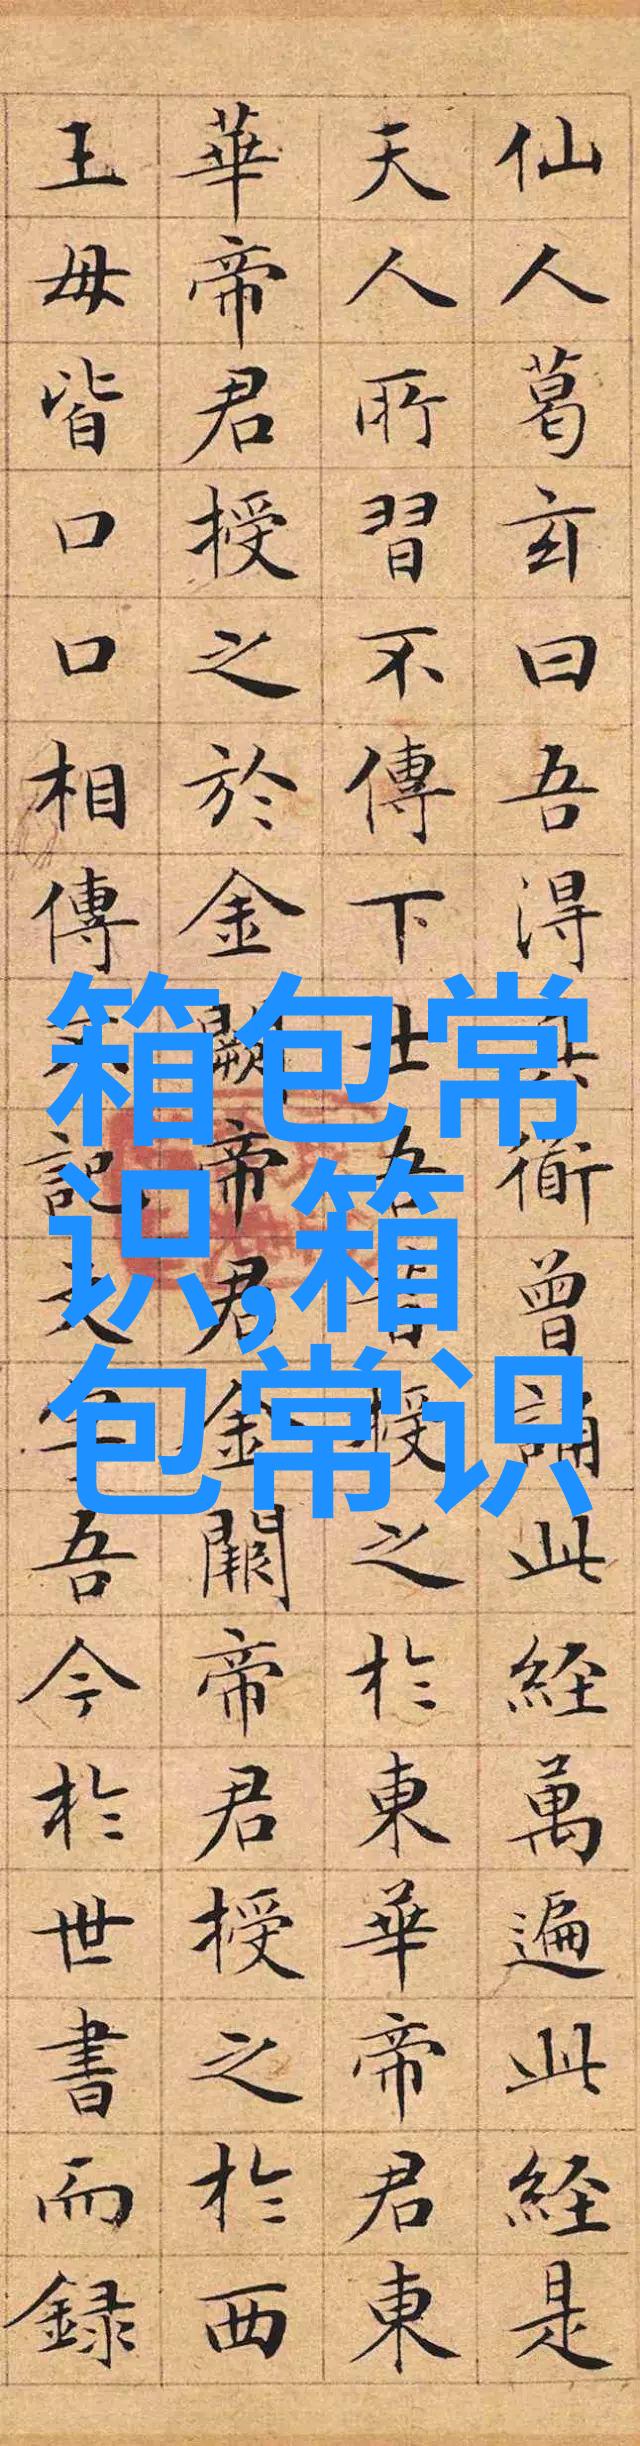 仙人葛玄曰吾得衜曾誦此経萬遍此経是
天人所習不傳下士吾昔授之於東華帝君東
華帝君授之於金闕帝君金闕帝君授之於西
王母皆口口相傳不記文字吾今於世書而録
箱包常
识,箱
包常识